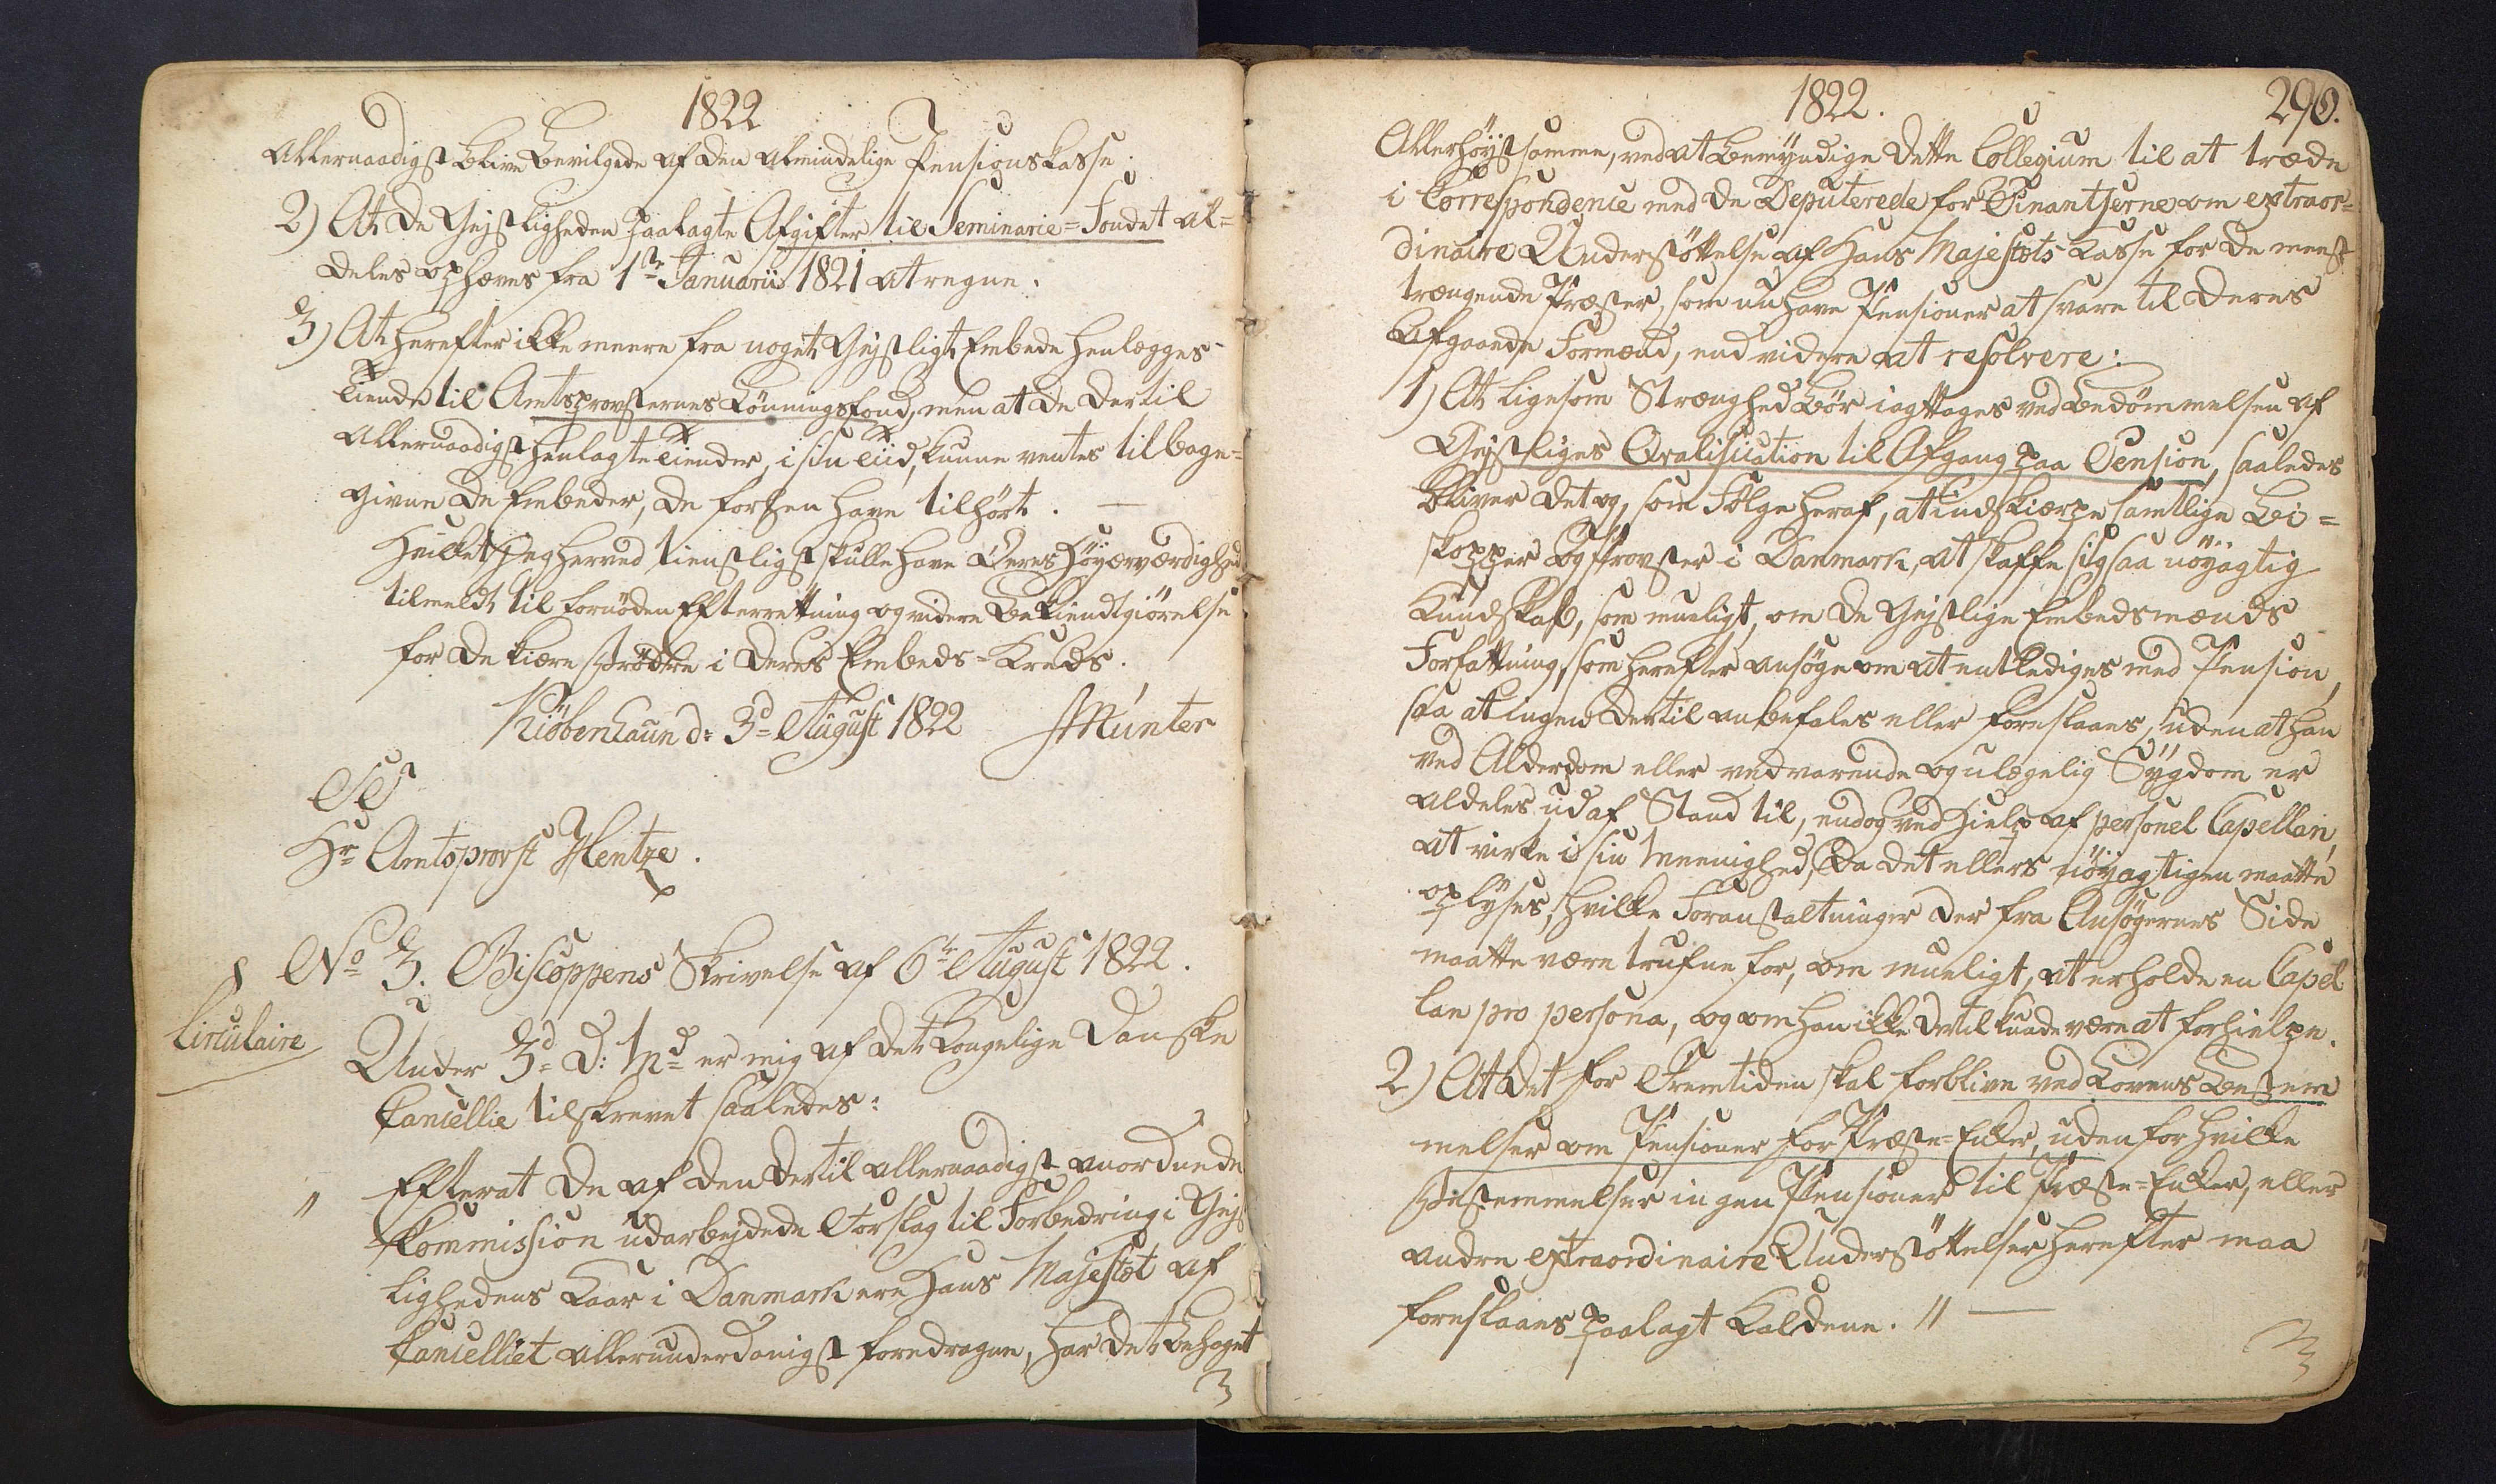 1822
Allernaadigst blive bevilgede af den almindelige Pensionskasse.
2) At de Gejstligheden paalagte Afgifter til Seminarie=Fondet al=
deles ophæves fra 1ste Januarii 1821 at regne.
3) At herefter ikke meere fra noget Gejstligt Embede henlægges
Tiende til Amtsprovsternes Lönningsfond, men at de dertil
Allernaadigst henlagte Tiender, i sin Tiid, kunne ventes tilbage=
givne de Embeder, de forhen have tilhört. —
Hvilket Jeg herved tienstligst skulle have Deres Höyærværdighed
tilmeldt til fornöden Efterretning og videre Bekiendtgiörelse
for de kiære Brödre i Deres Embeds=Kreds.
Kiöbenhaun d: 3d August 1822 Münter
Hr Amtsprovst Hentze.
No 3. Biscoppens Skrivelse af 6te August 1822.
Circulaire
Under 3d d: Md er mig af det Kongelige Danske
Cancellie tilskrevet saaledes:
" Efterat de af den dertil allernaadigst anordnede
Kommission udarbejdede Forslag til Forbedring i Gejst
lighedens Kaar i Danmark ere Hans Majestæt af
Cancelliet allerunderdanigst foredragne, har det behaget
1822. 290.
Allerhöystsamme, ved at bemyndige dette Collegium til at træde
i Correspondence med de Deputerede for Finantserne om extraor=
dinaire Understöttelse af Hans Majestæts Kasse for de meest
trængende Præster, som nu have Pensioner at svare til deres
Afgaaende Formænd, end videre at resolvere:
1) At ligesom Strænghed bör iagttages ved Bedömmelsen af
Gejstliges Qvalification til Afgang paa Pension, saaledes
bliver det og, som Fölge heraf, at indskiærpe samtlige Bi=
skopper og Provster i Danmark, at skaffe sig saa nöyagtig
Kundskab, som mueligt, om de Gejstlige Embedsmænds
Forfatning, som herefter ansöge om at entlediges med Pension,
saa at ingen dertil anbefales eller foreslaaes, uden at han
ved Alderdom eller vedvarende og ulægelig Sÿgdom er
aldeles ud af Stand til, endog ved Hielp af personel Capellan,
at virke i sin Meenighed, da det ellers nöyagtigen maatte
oplyses, hvilke Foranstaltninger der fra Ansögernes Side
maatte være trufne for, om mueligt, at erholde en Capel
lan pro persona, og om han ikke dertil kunde være at forhielpe.
2) At det for Fremtiden skal forblive ved Lovens Bestem
melser om Pensioner for Præste=Enker, uden for hvilke
Bestemmelser ingen Pensioner til Præste=Enker, eller
andre extraordinaire Understöttelser herefter maa
foreslaaes paalagt Kaldene. " —